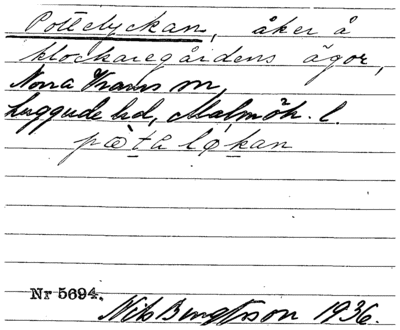 Pottelyckan, åker å
klockaregårdens ägor,
Norra Vrams sn,
Luggude hd, Malmöh. l.
pætå løkan
Nr 5694.
Nils Bengtsson 1936.